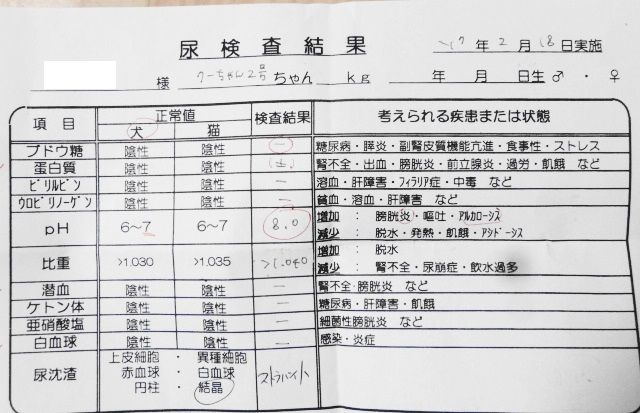 尿検査結果
'17年 2月 18日実施
様 クーちゃん2号 ちゃん kg 年 月 日生 ♂・♀
項目 正常値 検査結果 考えられる疾患または状態
犬 猫
ブドウ糖 陰性 陰性 － 糖尿病・膵炎・副腎皮質機能亢進・食事性・ストレス
蛋白質 陰性 陰性 (±) 腎不全・出血・膀胱炎・前立腺炎・過労・飢餓 など
ビリルビン 陰性 陰性 － 溶血・肝障害・フィラリア症・中毒 など
ウロビリノーゲン 陰性 陰性 － 貧血・溶血・肝障害 など
pH 6～7 6～7 8.0 増加 : 膀胱炎・嘔吐・アルカローシス
減少 : 脱水・発熱・飢餓・アシドーシス
比重 >1.030 >1.035 >1.040 増加 : 脱水
減少 : 腎不全・尿崩症・飲水過多
潜血 陰性 陰性 － 腎不全・膀胱炎 など
ケトン体 陰性 陰性 － 糖尿病・肝障害・飢餓
亜硝酸塩 陰性 陰性 － 細菌性膀胱炎 など
白血球 陰性 陰性 － 感染・炎症
尿沈渣 上皮細胞・異種細胞
赤血球・白血球 ストラバイト
円柱・結晶